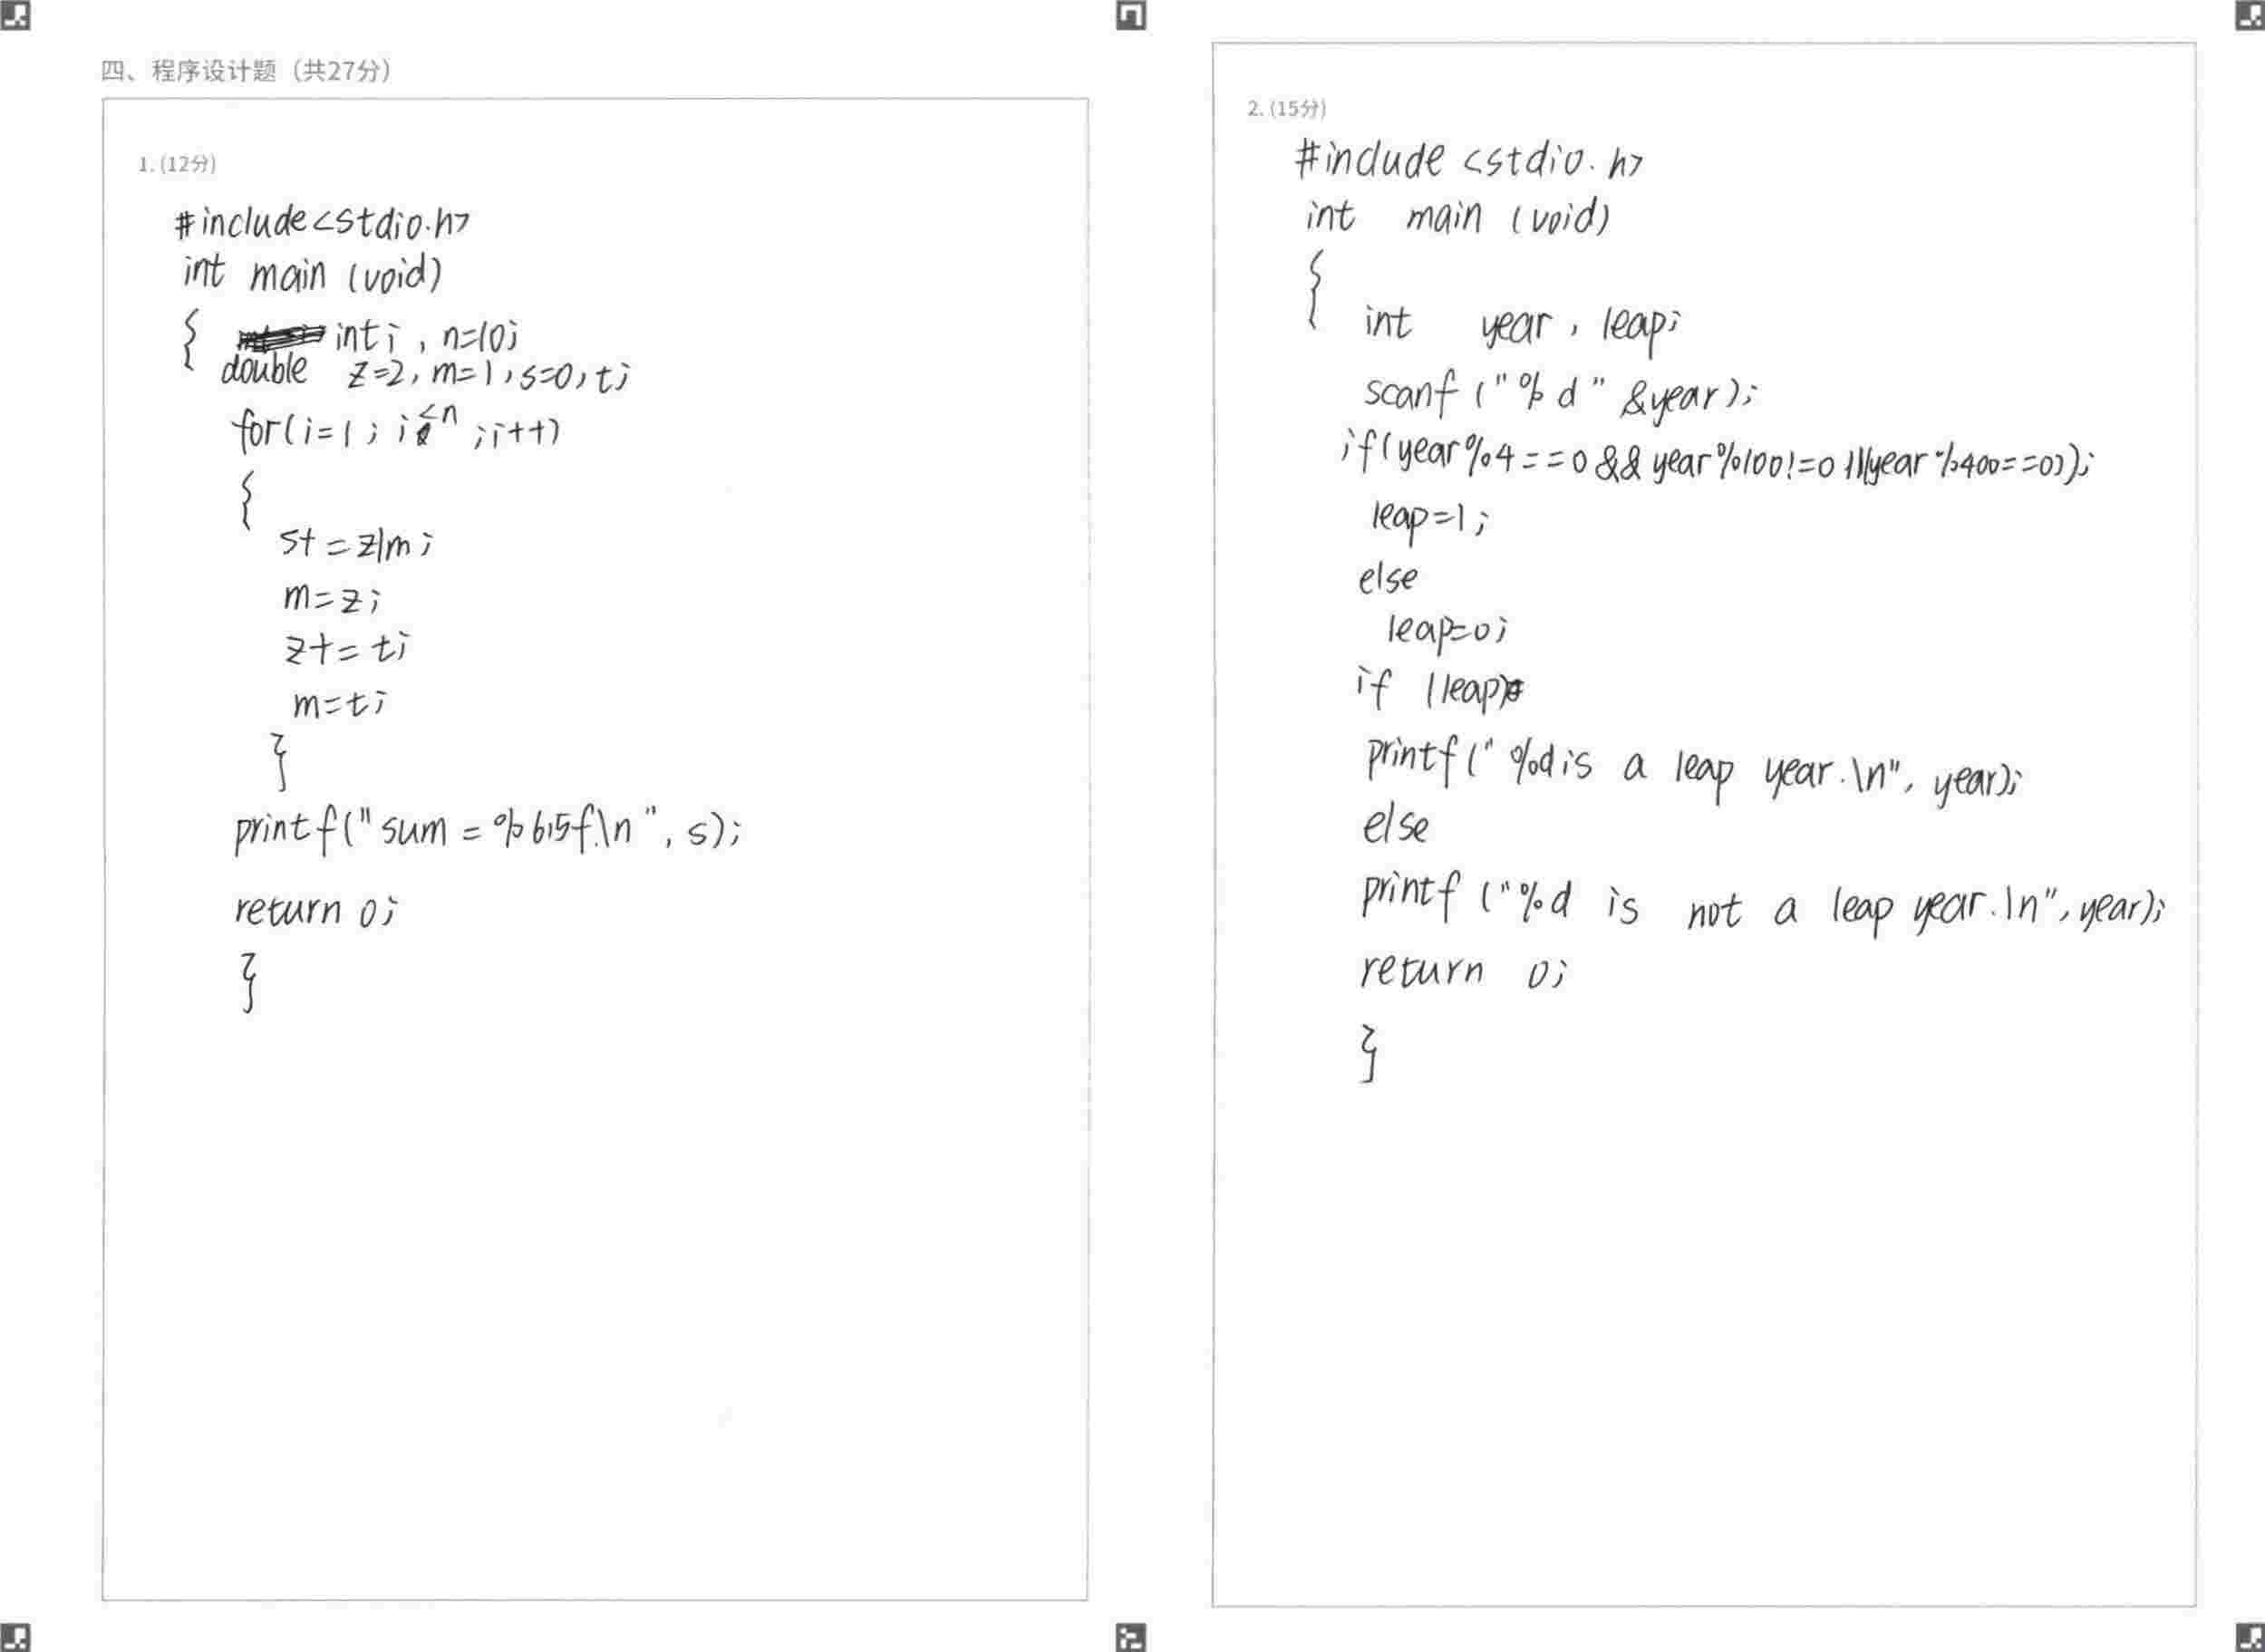 四、程序设计题（共27分）
1. (12分)
#include<stdio.h>
int main (void)
{ int i , n=10;
double z=2, m=1, s=0, t;
for(i=1; i<n ;i++)
{
s+=z/m;
m=z;
z+=t;
m=t;
}
printf("sum = %6.5f.\n", s);
return 0;
}
2. (15分)
#include <stdio.h>
int main (void)
{
int year, leap;
scanf ("%d" &year);
if(year%4==0 && year%100!=0 ||(year%400==0));
leap=1;
else
leap=0;
if (leap)
printf("%d is a leap year.\n", year);
else
printf ("%d is not a leap year.\n", year);
return 0;
}